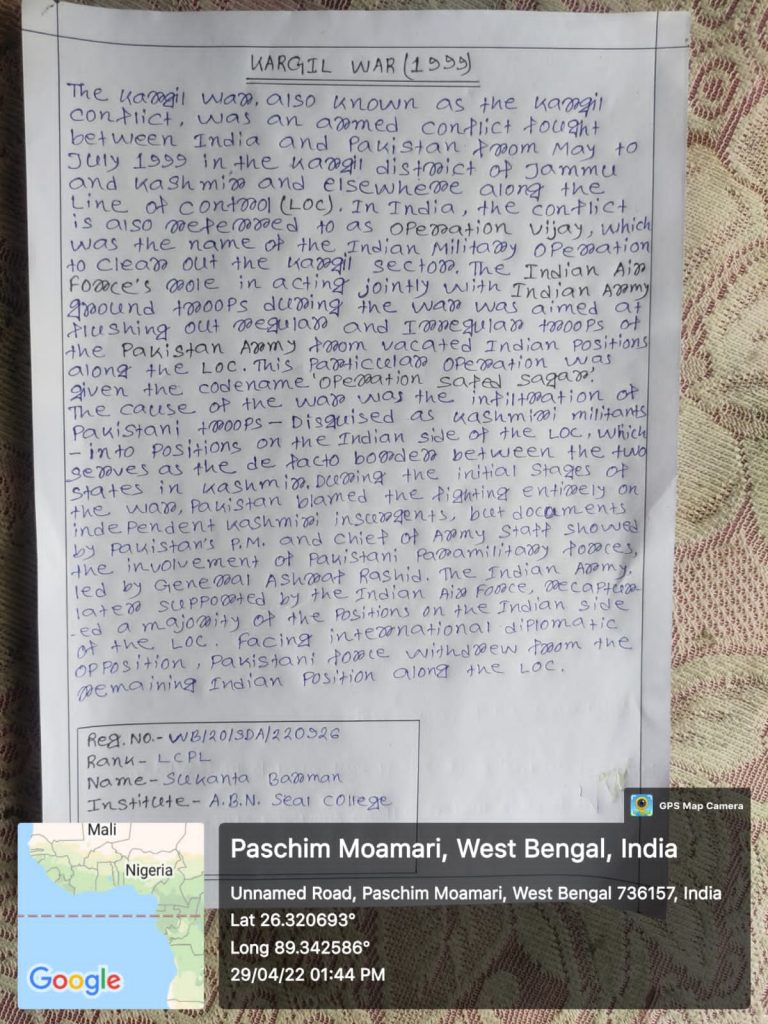 KARGIL WAR (1999)
The Kargil war, also known as the Kargil
conflict, was an armed conflict fought
between India and Pakistan from May to
July 1999 in the Kargil district of Jammu
and Kashmir and elsewhere along the
Line of control (LOC). In India, the conflict
is also referred to as Operation Vijay, which
was the name of the Indian Military Operation
to clear out the Kargil sector. The Indian Air
Force's role in acting jointly with Indian Army
ground troops during the war was aimed at
flushing out regular and Irregular troops of
the Pakistan Army from vacated Indian Positions
along the LOC. This Particular Operation was
given the codename 'Operation Safed Sagar'.
The cause of the war was the infiltration of
Pakistani troops - Disguised as Kashmiri militants
- into Positions on the Indian side of the LOC, which
serves as the de facto border between the two
states in Kashmir. During the initial stages of
the war, Pakistan blamed the fighting entirely on
independent Kashmiri insurgents, but documents
by Pakistan's P.M. and Chief of Army Staff showed
the involvement of Pakistani Paramilitary forces,
led by General Ashraf Rashid. The Indian Army,
later supported by the Indian Air Force, recaptur-
-ed a majority of the Positions on the Indian side
of the LOC. Facing international diplomatic
opposition, Pakistani force withdrew from the
remaining Indian Position along the LOC.
Reg. No.- WB/20/SDA/220926
Rank- LCPL
Name- Sukanta Barman
Institute- A.B.N. Seal College
GPS Map Camera
Mali
Nigeria
Google
Paschim Moamari, West Bengal, India
Unnamed Road, Paschim Moamari, West Bengal 736157, India
Lat 26.320693°
Long 89.342586°
29/04/22 01:44 PM